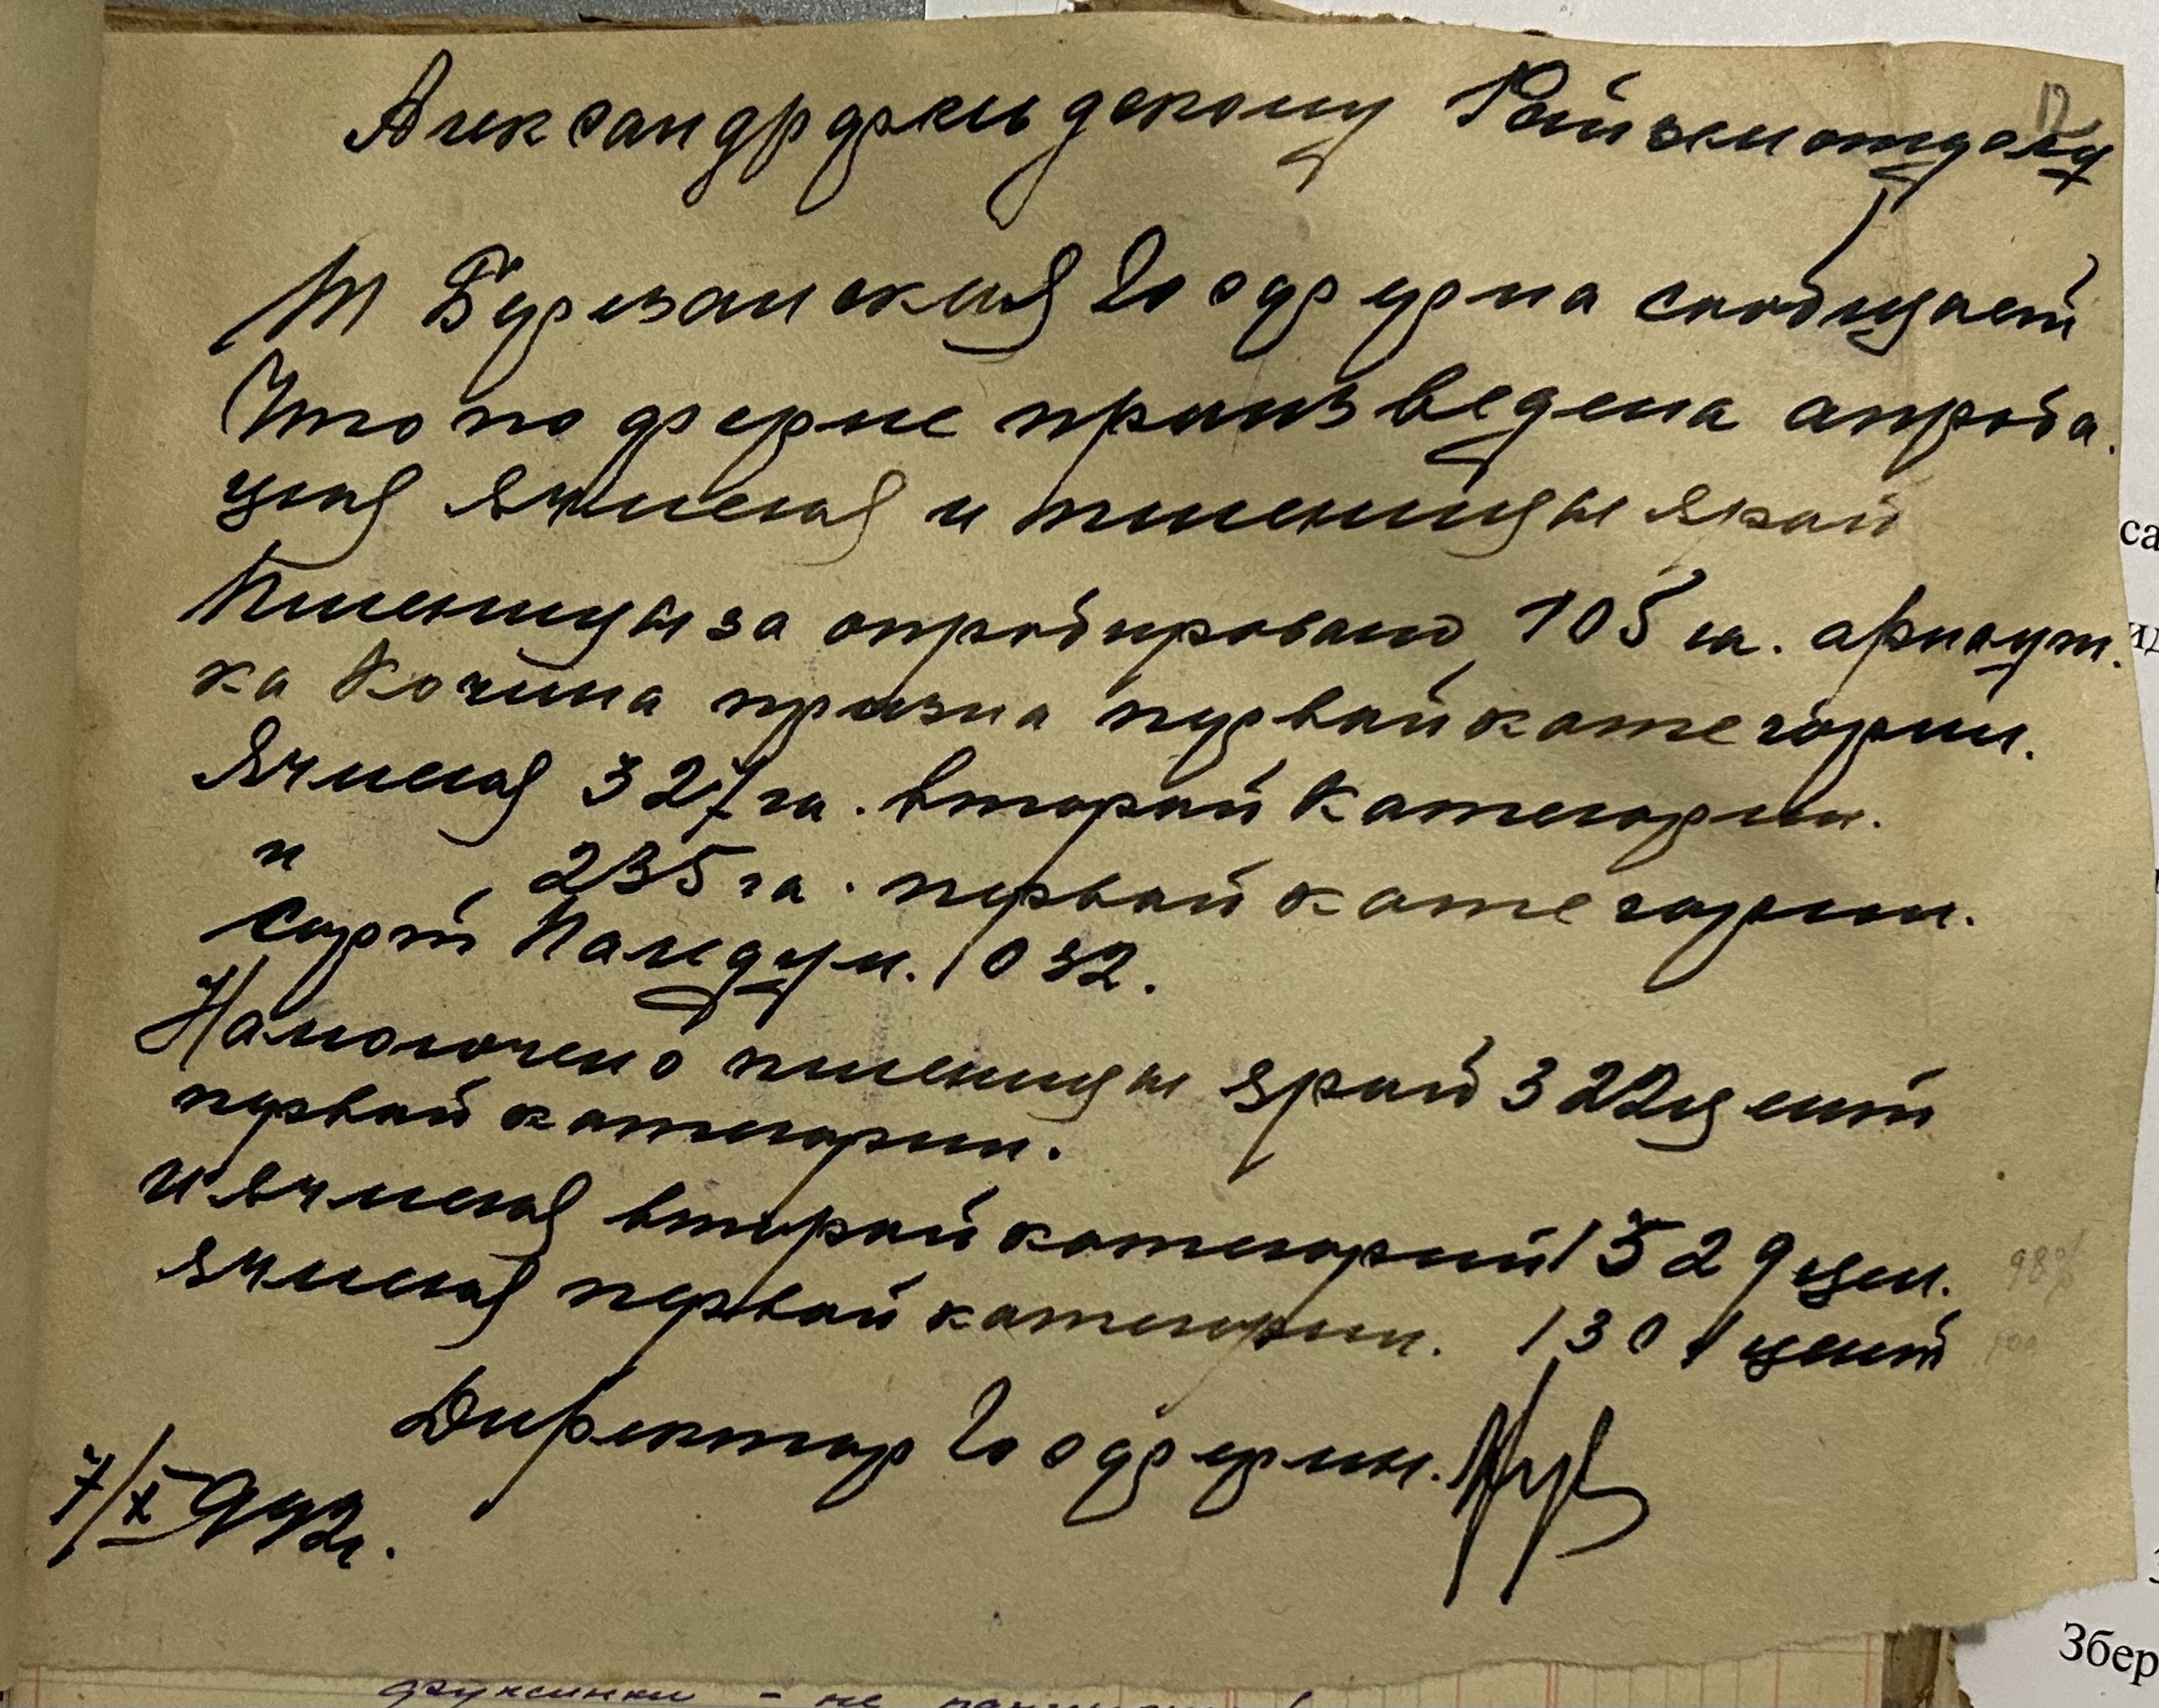 12
Александрфельдскому Райземотделу
Т Березанская Госферма сообщает
Что по ферме произведена апроба.
ция ячменя и пшеницы ярой
Пшеницы за опробировано 105 га. арнаут.
ка Кочина призна первой категории.
Ячменя 327 га. второй категории.
и 235 га. первой категории.
Сорт Палидум. 032.
Намолочено пшеницы ярой 322 цент
первой категории.
И ячменя второй категории 1529 цен.
98%
ячменя первой категории. 1301 цент
100
Директор Госфермы.
7/X 942г.
са
Збер